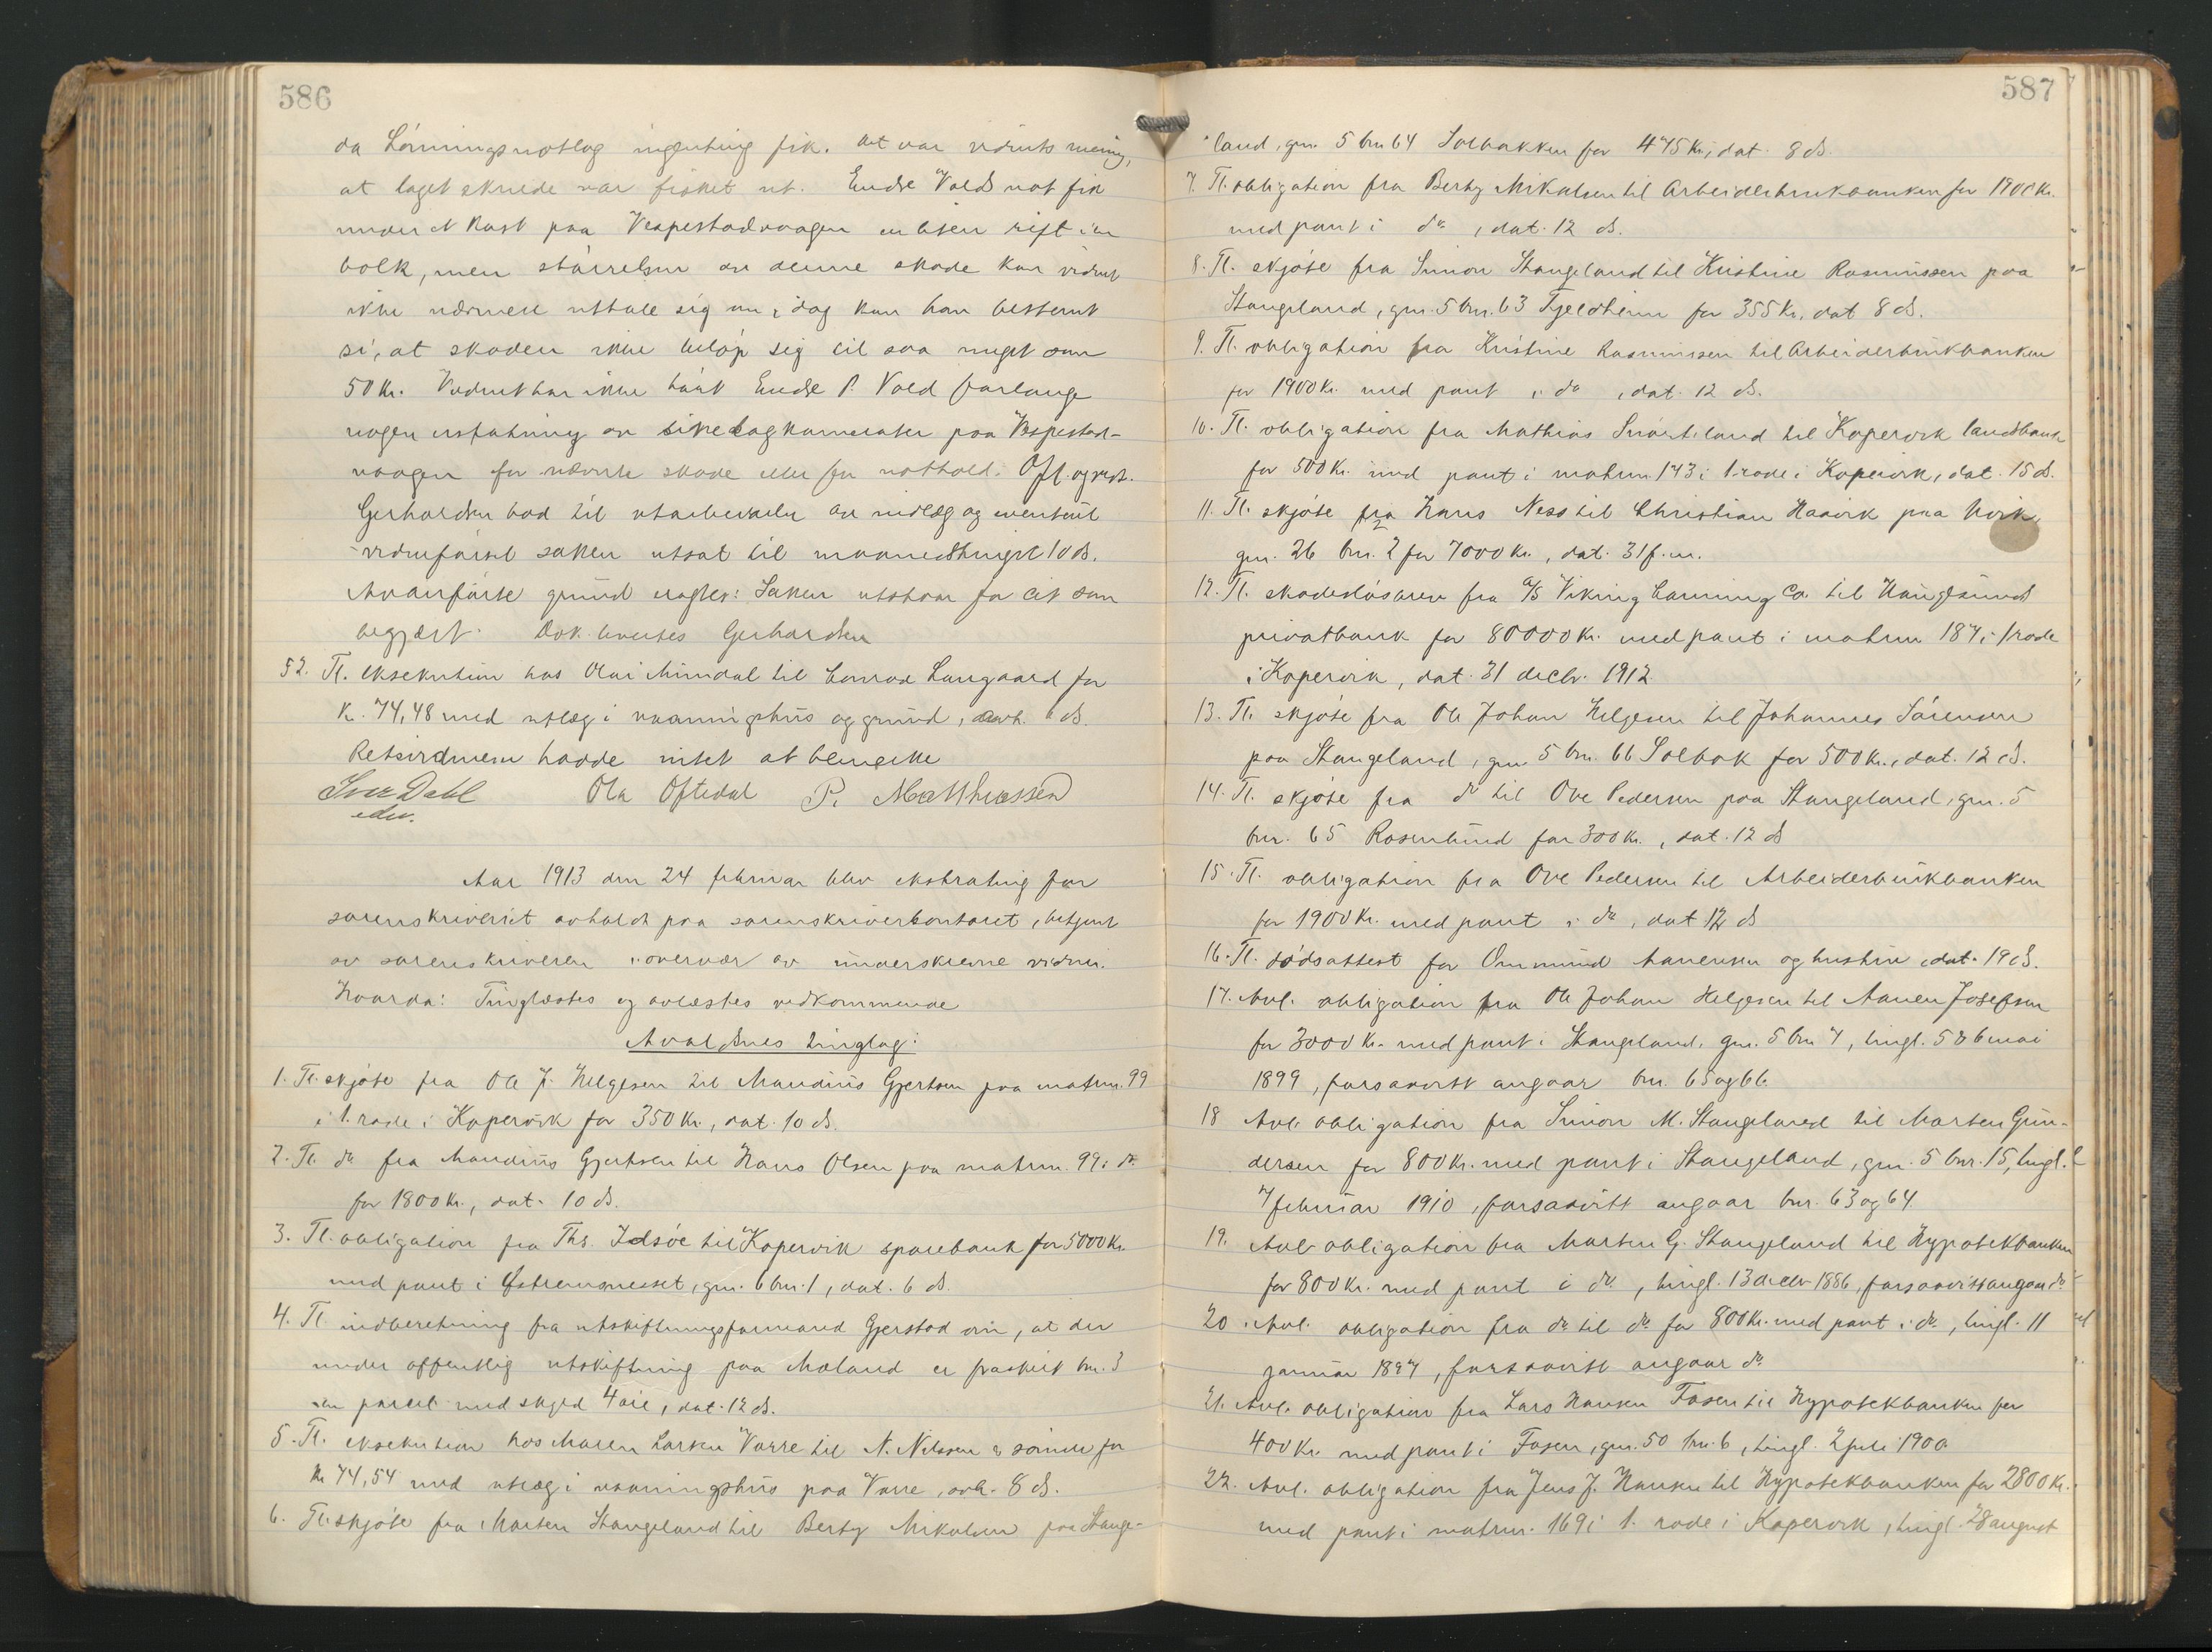 586
da Lönningsnotlag ingenting fik. Det var vidnets mening,
at laget skulde var fisket ut. Endre Volds not fik
under et kast paa Vespestadvaagen en liten rift i en
bolk, men størrelsen av denne skade kan vidnet
ikke nærmere uttale sig om, i dag kan han bestemt
si, at skaden ikke beløp sig til saa meget som
50 kr. Vidnet har ikke hørt Endre P. Vold forlange
nogen erstatning av sine lagkamerater paa Vespestad-
vaagen for nævnte skade eller for nothold. Ofl. og rest.
Gerhardsen bad til utarbeidelse av indlæg og eventuel
vidneførsel saken utsat til maanedstinget 10 ds.
Avanførte grund eragtes: Saken utstaar for det som
begjært. Dok. leveres Gerhardsen
52. Tl. eksekution hos Olai Mindal til Conrad Langaard for
kr. 74,48 med utlæg i vaaningshus og grund, avh. ds.
Retsvidnene hadde intet at bemerke
Iver Dahl
edsv.
Ola Oftedal P. Matthiassen
Aar 1913 den 24 februar blev ekstrating for
sorenskriveriet avholdt paa sorenskriverkontoret, betjent
av sorenskriveren i overvær av underskrevne vidner.
Hvorda: Tinglæstes og avlæstes vedkommende
Avaldsnes tinglag:
1. Tl. skjøte fra Ole J. Helgesen til Maudius Gjertsen paa matrnr. 99
i 1. rode i Kopervik for 350 kr., dat. 10 ds.
2. Tl. do fra Maudius Gjertsen til Hans Olsen paa matrnr. 99 i do
for 1800 kr., dat. 10 ds.
3. Tl. obligation fra Ths. Idsøe til Kopervik sparebank for 5000 kr.
med pant i Østremnesset, gnr. 6 bnr. 1, dat. 6 ds.
4. Tl. indberetning fra utskiftningsformand Gjerstad om, at der
under offentlig utskiftning paa Mæland er fraskilt bnr. 3
en parcel med skyld 4 øre, dat. 12 ds.
5. Tl. eksekution hos Maren Larsen Varre til N. Nilssen & sønner for
kr. 74,54 med utlæg i vaaningshus paa Varre, avh. 8 ds.
6. Tl. skjøte fra Marten Stangeland til Berty Mikalsen paa Stange-
587
land, gnr. 5 bnr. 64 Solbakken for 475 kr., dat. 8 ds.
7. Tl. obligation fra Berty Mikalsen til Arbeiderbrukbanken for 1900 kr.
med pant i do, dat. 12 ds.
8. Tl. skjøte fra Simon Stangeland til Kristine Rasmussen paa
Stangeland, gnr. 5 bnr. 63 Fjeldheim for 355 kr., dat. 8 ds.
9. Tl. obligation fra Kristine Rasmussen til Arbeiderbrukbanken
for 1900 kr. med pant i do, dat. 12 ds.
10. Tl. obligation fra Mathias Sværtiland til Kopervik landsbank
for 500 kr. med pant i matrnr. 143 i 1. rode i Kopervik, dat. 15 ds.
11. Tl. skjøte fra Hans Ness til Christian Haavik paa Kvik,
gnr. 26 bnr. 2 for 7000 kr., dat. 31 f.m.
12. Tl. skadesløsbrev fra A/S Viking Canning Co. til Haugesunds
privatbank for 80000 kr. med pant i matrnr 187 i 1 rode
i Kopervik, dat. 31 decbr. 1912
13. Tl. skjøte fra Ole Johan Helgesen til Johannes Sørensen
paa Stangeland, gnr. 5 bnr. 66 Solbak for 500 kr., dat. 12 ds.
14. Tl. skjøte fra do til Ove Pedersen paa Stangeland, gnr. 5
bnr. 65 Rosenlund for 300 kr., dat. 12 ds
15. Tl. obligation fra Ove Pedersen til Arbeiderbrukbanken
for 1900 kr. med pant i do, dat 12 ds
16. Tl. dødsattest for Ommund Aanensen og hustru, dat. 19 ds.
17. Avl. obligation fra Ole Johan Helgesen til Aanen Josefsen
for 3000 kr. med pant i Stangeland, gnr. 5 bnr 7, tingl. 5 & 6 mai
1899, forsaavidt angaar bnr. 65 og 66
18 Avl. obligation fra Simon M. Stangeland til Marten Gun-
dersen for 800 kr. med pant i Stangeland, gnr. 5 bnr. 15, tingl.
7 februar 1910, forsaavidt angaar bnr. 63 og 64.
19. Avl. obligation fra Marten G. Stangeland til Hypotekbanken
for 800 kr. med pant i do, tingl. 13 decbr 1886, forsaavidt angaar do
20. Avl. obligation fra do til do for 800 kr. med pant i do, tingl. 11
januar 1897, forsaavidt angaar do
21. Avl. obligation fra Lars Hansen Fosen til Hypotekbanken for
400 kr. med pant i Fosen, gnr. 50 bnr. 6, tingl. 2 juli 1900.
22. Avl. obligation fra Jens J. Hansen til Hypotekbanken for 2800 kr.
med pant i matrnr. 169 i 1. rode i Kopervik, tingl. 28 august